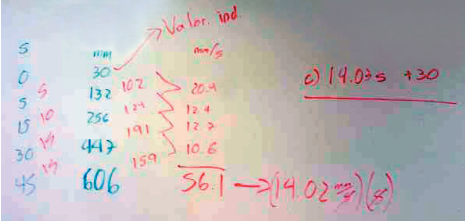 Valor. ind.
s mm mm/s
0 30
5 5 132 102 20.4
15 10 256 124 12.4
30 15 447 191 12.7
45 15 606 159 10.6
56.1 → (14.02 mm/s)(s)
c) 14.03 s +30